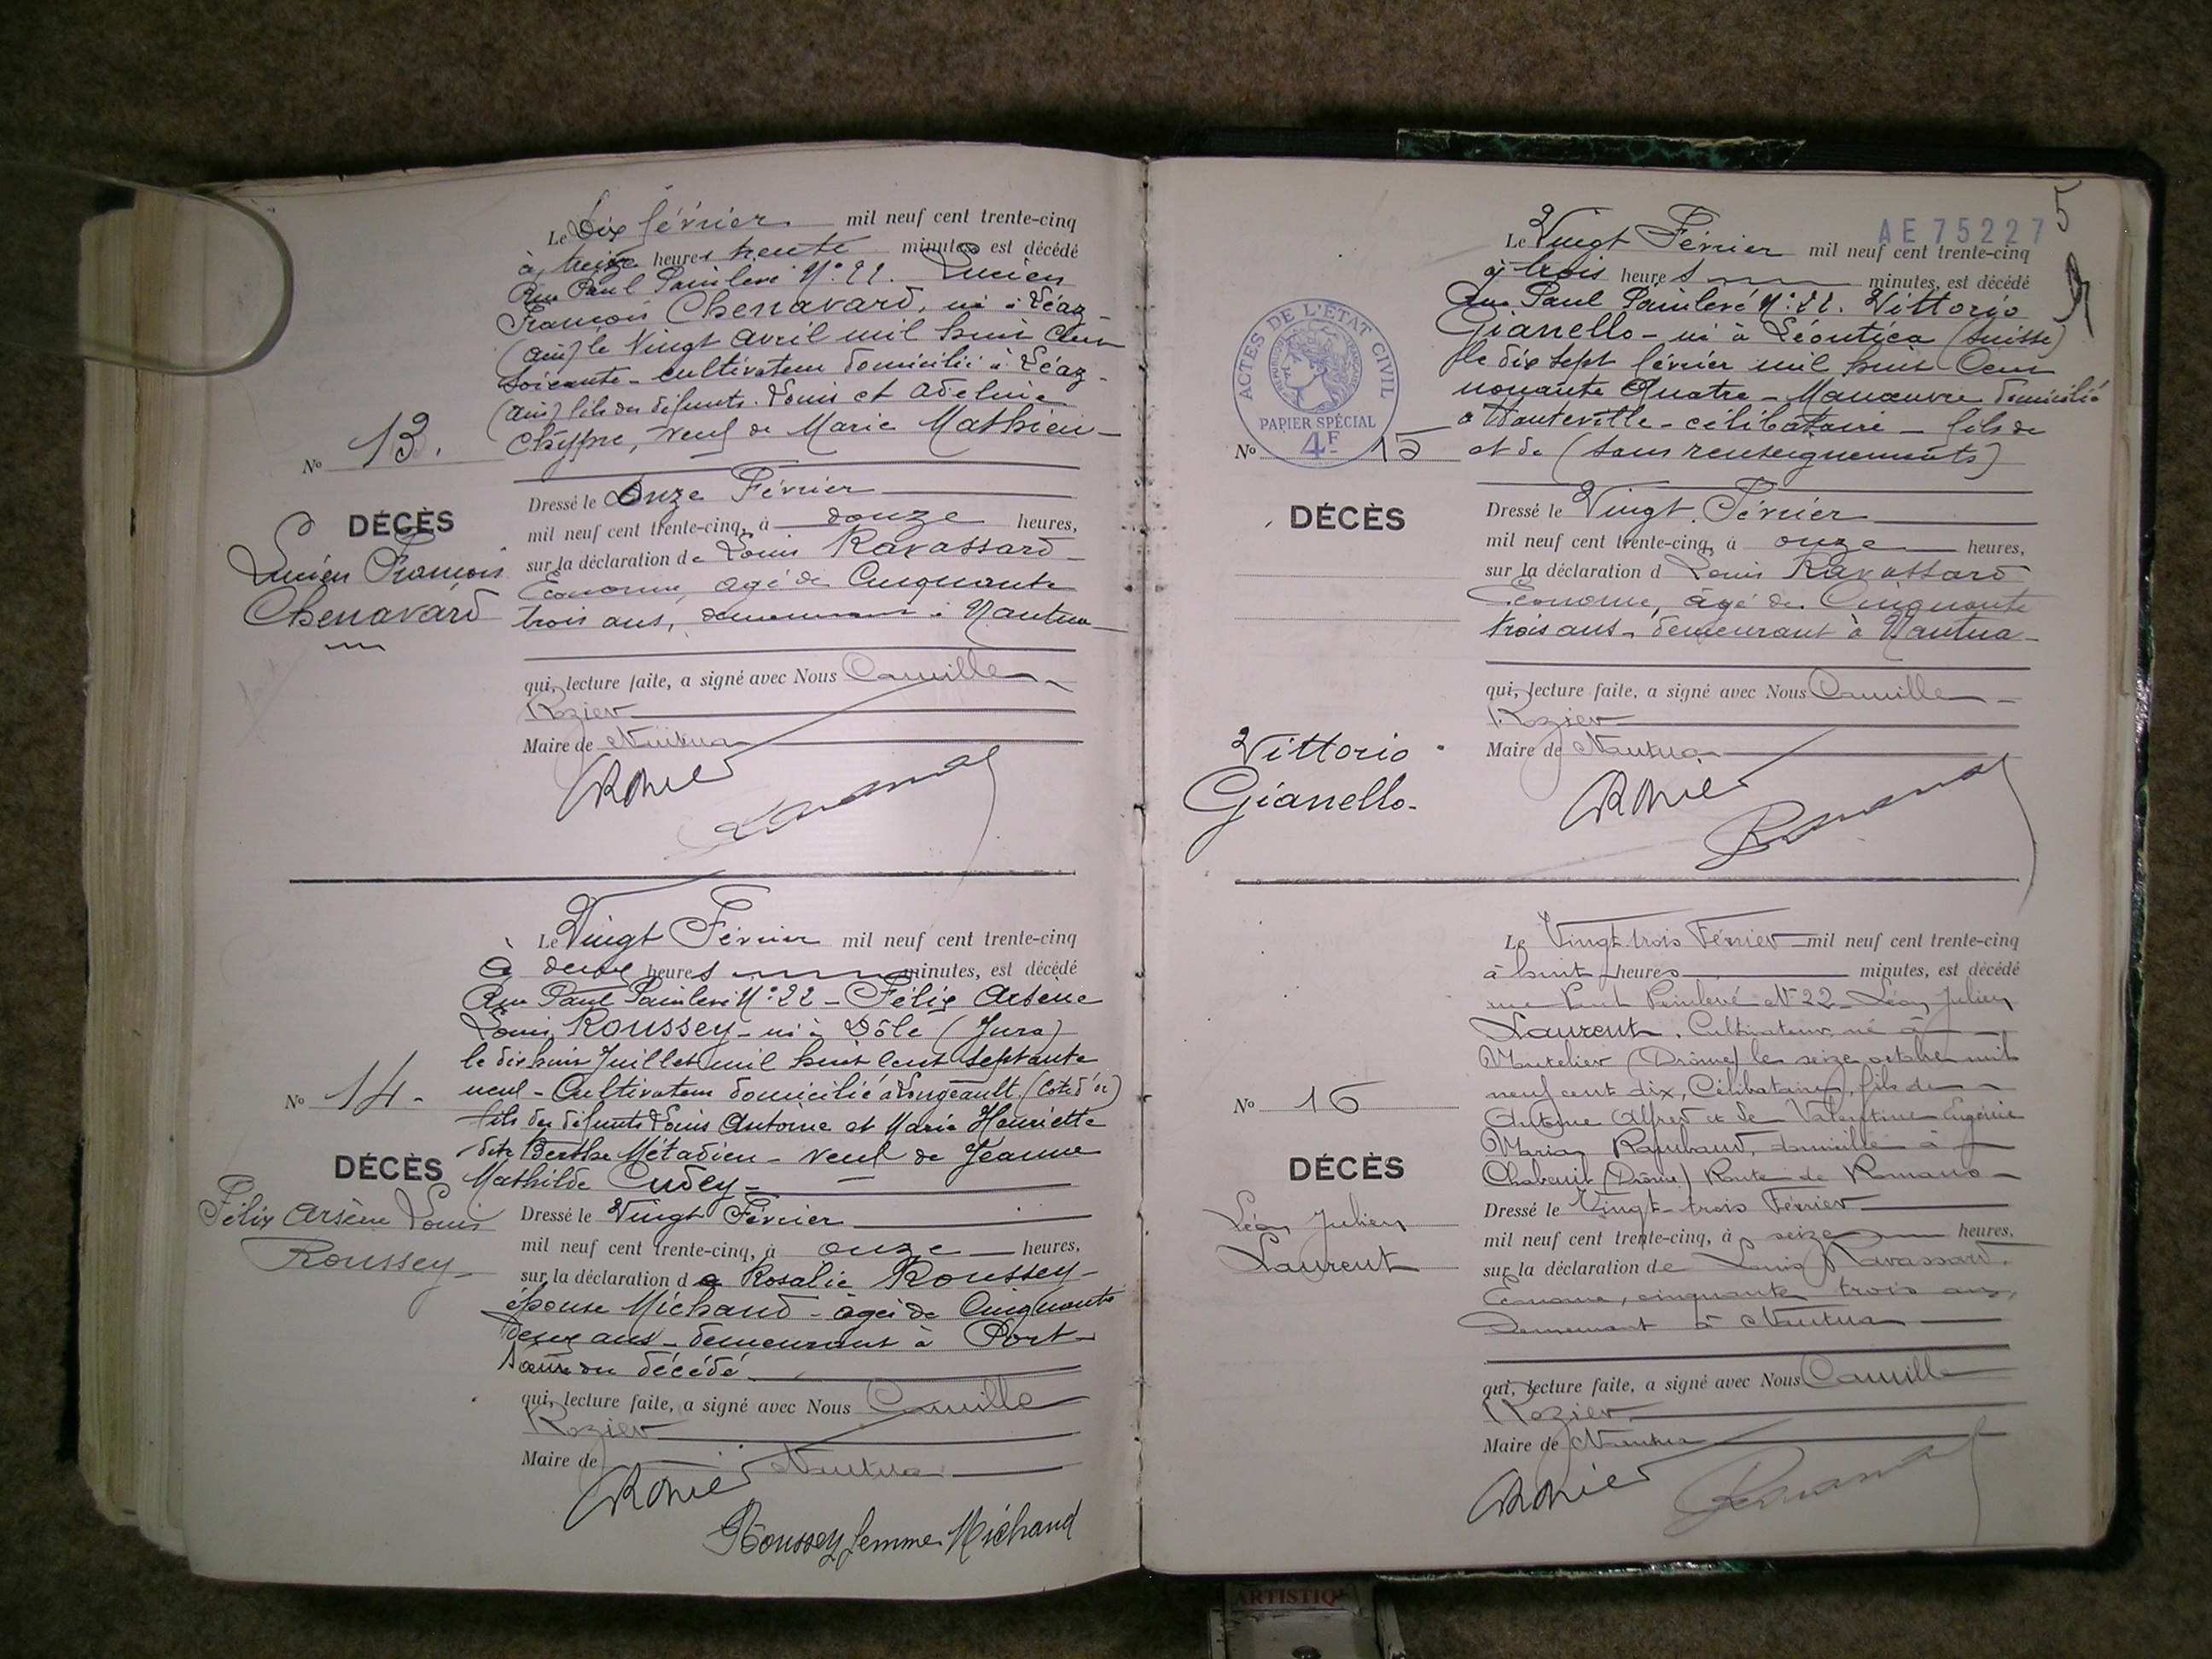 Le Dix février mil neuf cent trente-cinq
à treize heures trente minutes est décédé
Rue Paul Painlevé N° 22. Lucien
François Chenavard, né à Léaz
(Ain) le Vingt avril mil huit Cent
soixante - cultivateur domicilié à Léaz -
(Ain) fils des défunts. Louis et Adeline
Cheypre, veuf de Marie Mathieu -
No 13.
DÉCÈS
Lucien François
Chenavard
Dressé le Onze Février
mil neuf cent trente-cinq, à douze heures,
sur la déclaration de Louis Ravassard
Econome, agé de Cinquante
trois ans, demeurant à Nantua
qui, lecture faite, a signé avec Nous Camille
Rozier
Maire de Nantua
Le Vingt Février mil neuf cent trente-cinq
à deux heures minutes, est décédé
Rue Paul Painlevé N° 22 - Félix Arsène
Louis Roussey - né à Dôle (Jura)
le dix huit Juillet mil huit Cent septante
neuf - Cultivateur domicilié à Longeault (Côte d'or)
fils des défunts Louis Antoine et Marie Henriette
dite Berthe Métadieu - veuf de Jeanne
Mathilde Cudey -
No 14 -
DÉCÈS
Félix Arsène Louis
Roussey
Dressé le Vingt Février
mil neuf cent trente-cinq, à onze heures,
sur la déclaration de Rosalie Roussey -
épouse Michaud - âgée de Cinquante
deux ans - demeurant à Port -
sœur du décédé.
qui, lecture faite, a signé avec Nous Camille
Rozier
Maire de Nantua
Roussey femme Michaud
5
AE 75227
Le Vingt Février mil neuf cent trente-cinq
à trois heures minutes, est décédé
Rue Paul Painlevé N° 22. Vittorio
Gianello - né à Léontica (Suisse)
le dix sept février mil huit Cent
nonante Quatre - Manœuvre domicilié
à Hauteville - célibataire - fils de
et de (sans renseignements)
ACTES DE L'ÉTAT CIVIL
RÉPUBLIQUE FRANÇAISE
PAPIER SPÉCIAL
4F
No 15
DÉCÈS
Vittorio
Gianello -
Dressé le Vingt Février
mil neuf cent trente-cinq, à onze heures,
sur la déclaration d Louis Ravassard
Econome, âgé de Cinquante
trois ans - demeurant à Nantua -
qui, lecture faite, a signé avec Nous Camille
Rozier
Maire de Nantua
Le Vingt-trois Février mil neuf cent trente-cinq
à huit heures minutes, est décédé
rue Paul Painlevé N° 22 - Léon Julien
Laurent. Cultivateur, né à
Montelier (Drôme) le seize octobre mil
neuf cent dix, Célibataire, fils de
Antoine Alfred et de Valentine Eugénie
Maria Raimbaud, domicilié à
Chabeuil (Drôme) Route de Romans -
No 16
DÉCÈS
Léon Julien
Laurent
Dressé le Vingt-trois Février
mil neuf cent trente-cinq, à seize heures,
sur la déclaration de Louis Ravassard.
Econome, cinquante trois ans,
Demeurant à Nantua
qui, lecture faite, a signé avec Nous Camille
Rozier
Maire de Nantua
ARTISTIQ